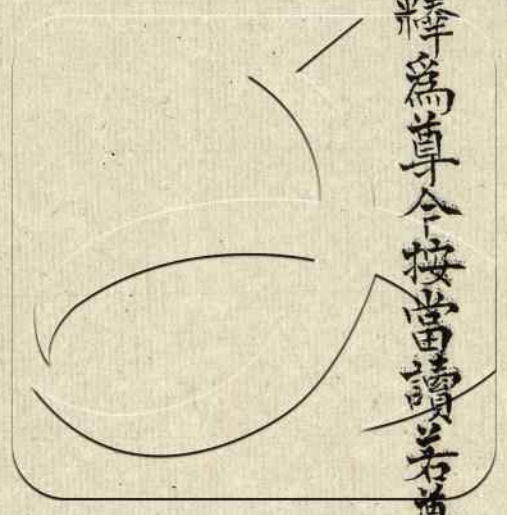 爲尊今按當讀若